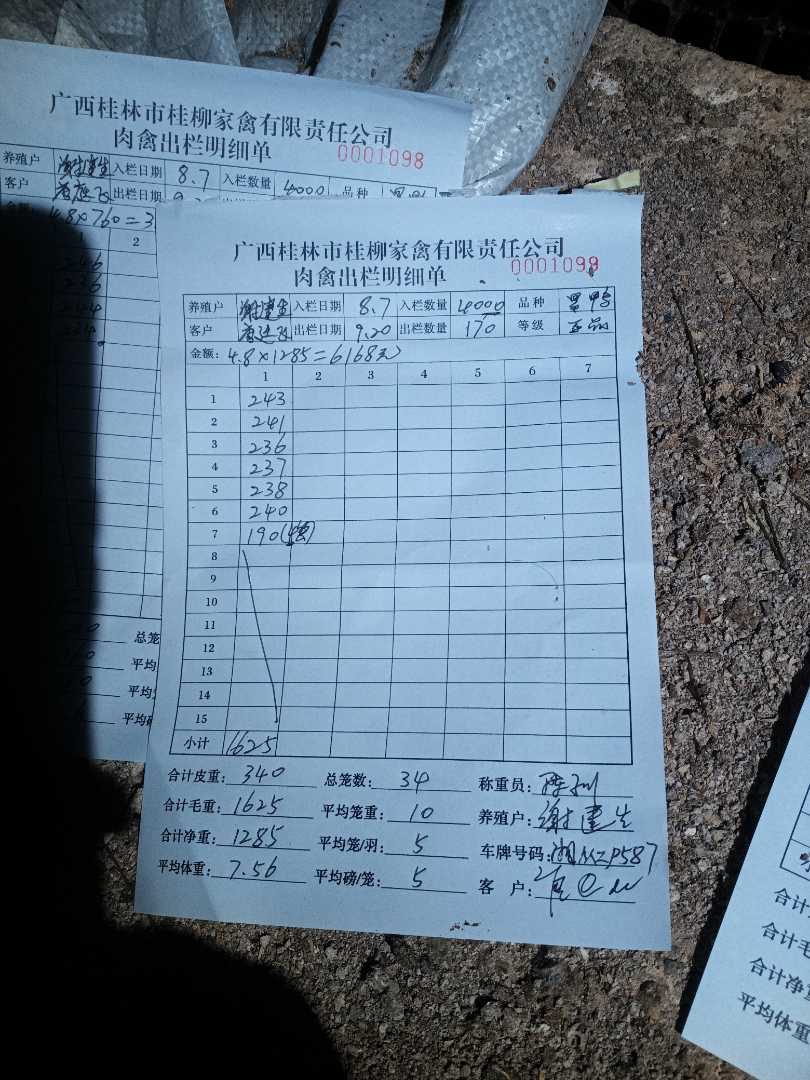 广西桂林市桂柳家禽有限责任公司
肉禽出栏明细单
0001098
养殖户 谢建生 入栏日期 8.7 入栏数量 4000 品种
客户 出栏日期
4.8×760=3
1 2
246
236
244
234
总笼
平均
平均
平均
广西桂林市桂柳家禽有限责任公司
肉禽出栏明细单
0001099
养殖户 谢建生 入栏日期 8.7 入栏数量 4000 品种
客户 出栏日期 9.20 出栏数量 170 等级 正品
金额: 4.8×1285=6168元
1 2 3 4 5 6 7
1 243
2 241
3 236
4 237
5 238
6 240
7 190
8
9
10
11
12
13
14
15
小计 1625
合计皮重: 340 总笼数: 34 称重员:
合计毛重: 1625 平均笼重: 10 养殖户: 谢建生
合计净重: 1285 平均笼/羽: 5 车牌号码: 湘MZP587
平均体重: 7.56 平均磅/笼: 5 客 户:
合计
合计毛
合计净
平均体重